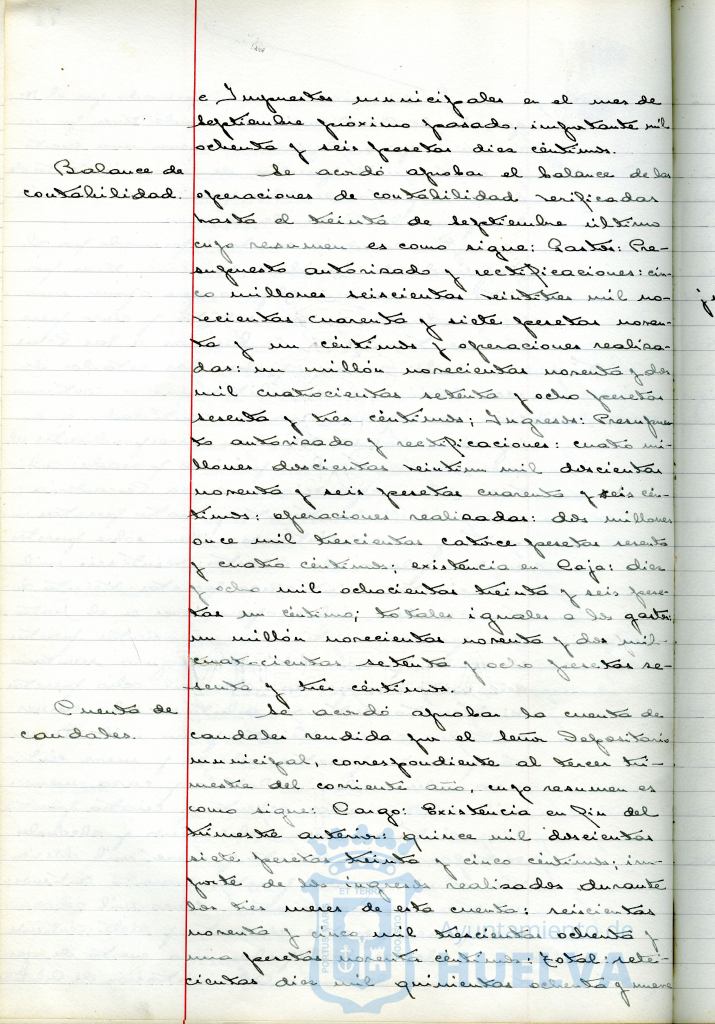 e Impuestos municipales en el mes de
septiembre próximo pasado, importante mil
ochenta y seis pesetas diez céntimos.
Balance de
contabilidad.
Se acordó aprobar el balance de las
operaciones de contabilidad verificadas
hasta el treinta de septiembre último
cuyo resumen es como sigue: Gastos: Pre-
supuesto autorizado y rectificaciones: cin-
co millones seiscientas veintitres mil no-
vecientas cuarenta y siete pesetas noven-
ta y un céntimos y operaciones realiza-
das: un millón novecientas noventa y dos
mil cuatrocientas setenta y ocho pesetas
sesenta y tres céntimos; Ingresos: Presupues-
to autorizado y rectificaciones: cuatro mi-
llones doscientas veintiun mil doscientas
noventa y seis pesetas cuarenta y seis cén-
timos: operaciones realizadas: dos millones
once mil trescientas catorce pesetas sesenta
y cuatro céntimos; existencia en Caja: diez
y ocho mil ochocientas treinta y seis pese-
tas un céntimo; totales iguales a los gastos:
un millón novecientas noventa y dos mil
cuatrocientas setenta y ocho pesetas se-
senta y tres céntimos.
Cuenta de
caudales.
Se acordó aprobar la cuenta de
caudales rendida por el Señor Depositario
municipal, correspondiente al tercer tri-
mestre del corriente año, cuyo resumen es
como sigue: Cargo: Existencia en fin del
trimestre anterior: quince mil doscientas
siete pesetas treinta y cinco céntimos; im-
porte de los ingresos realizados durante
los tres meses de esta cuenta: seiscientas
noventa y cinco mil trescientas ochenta y
una pesetas noventa céntimos: total: sete-
cientas diez mil quinientas ochenta y nueve
Ayuntamiento de
HUELVA